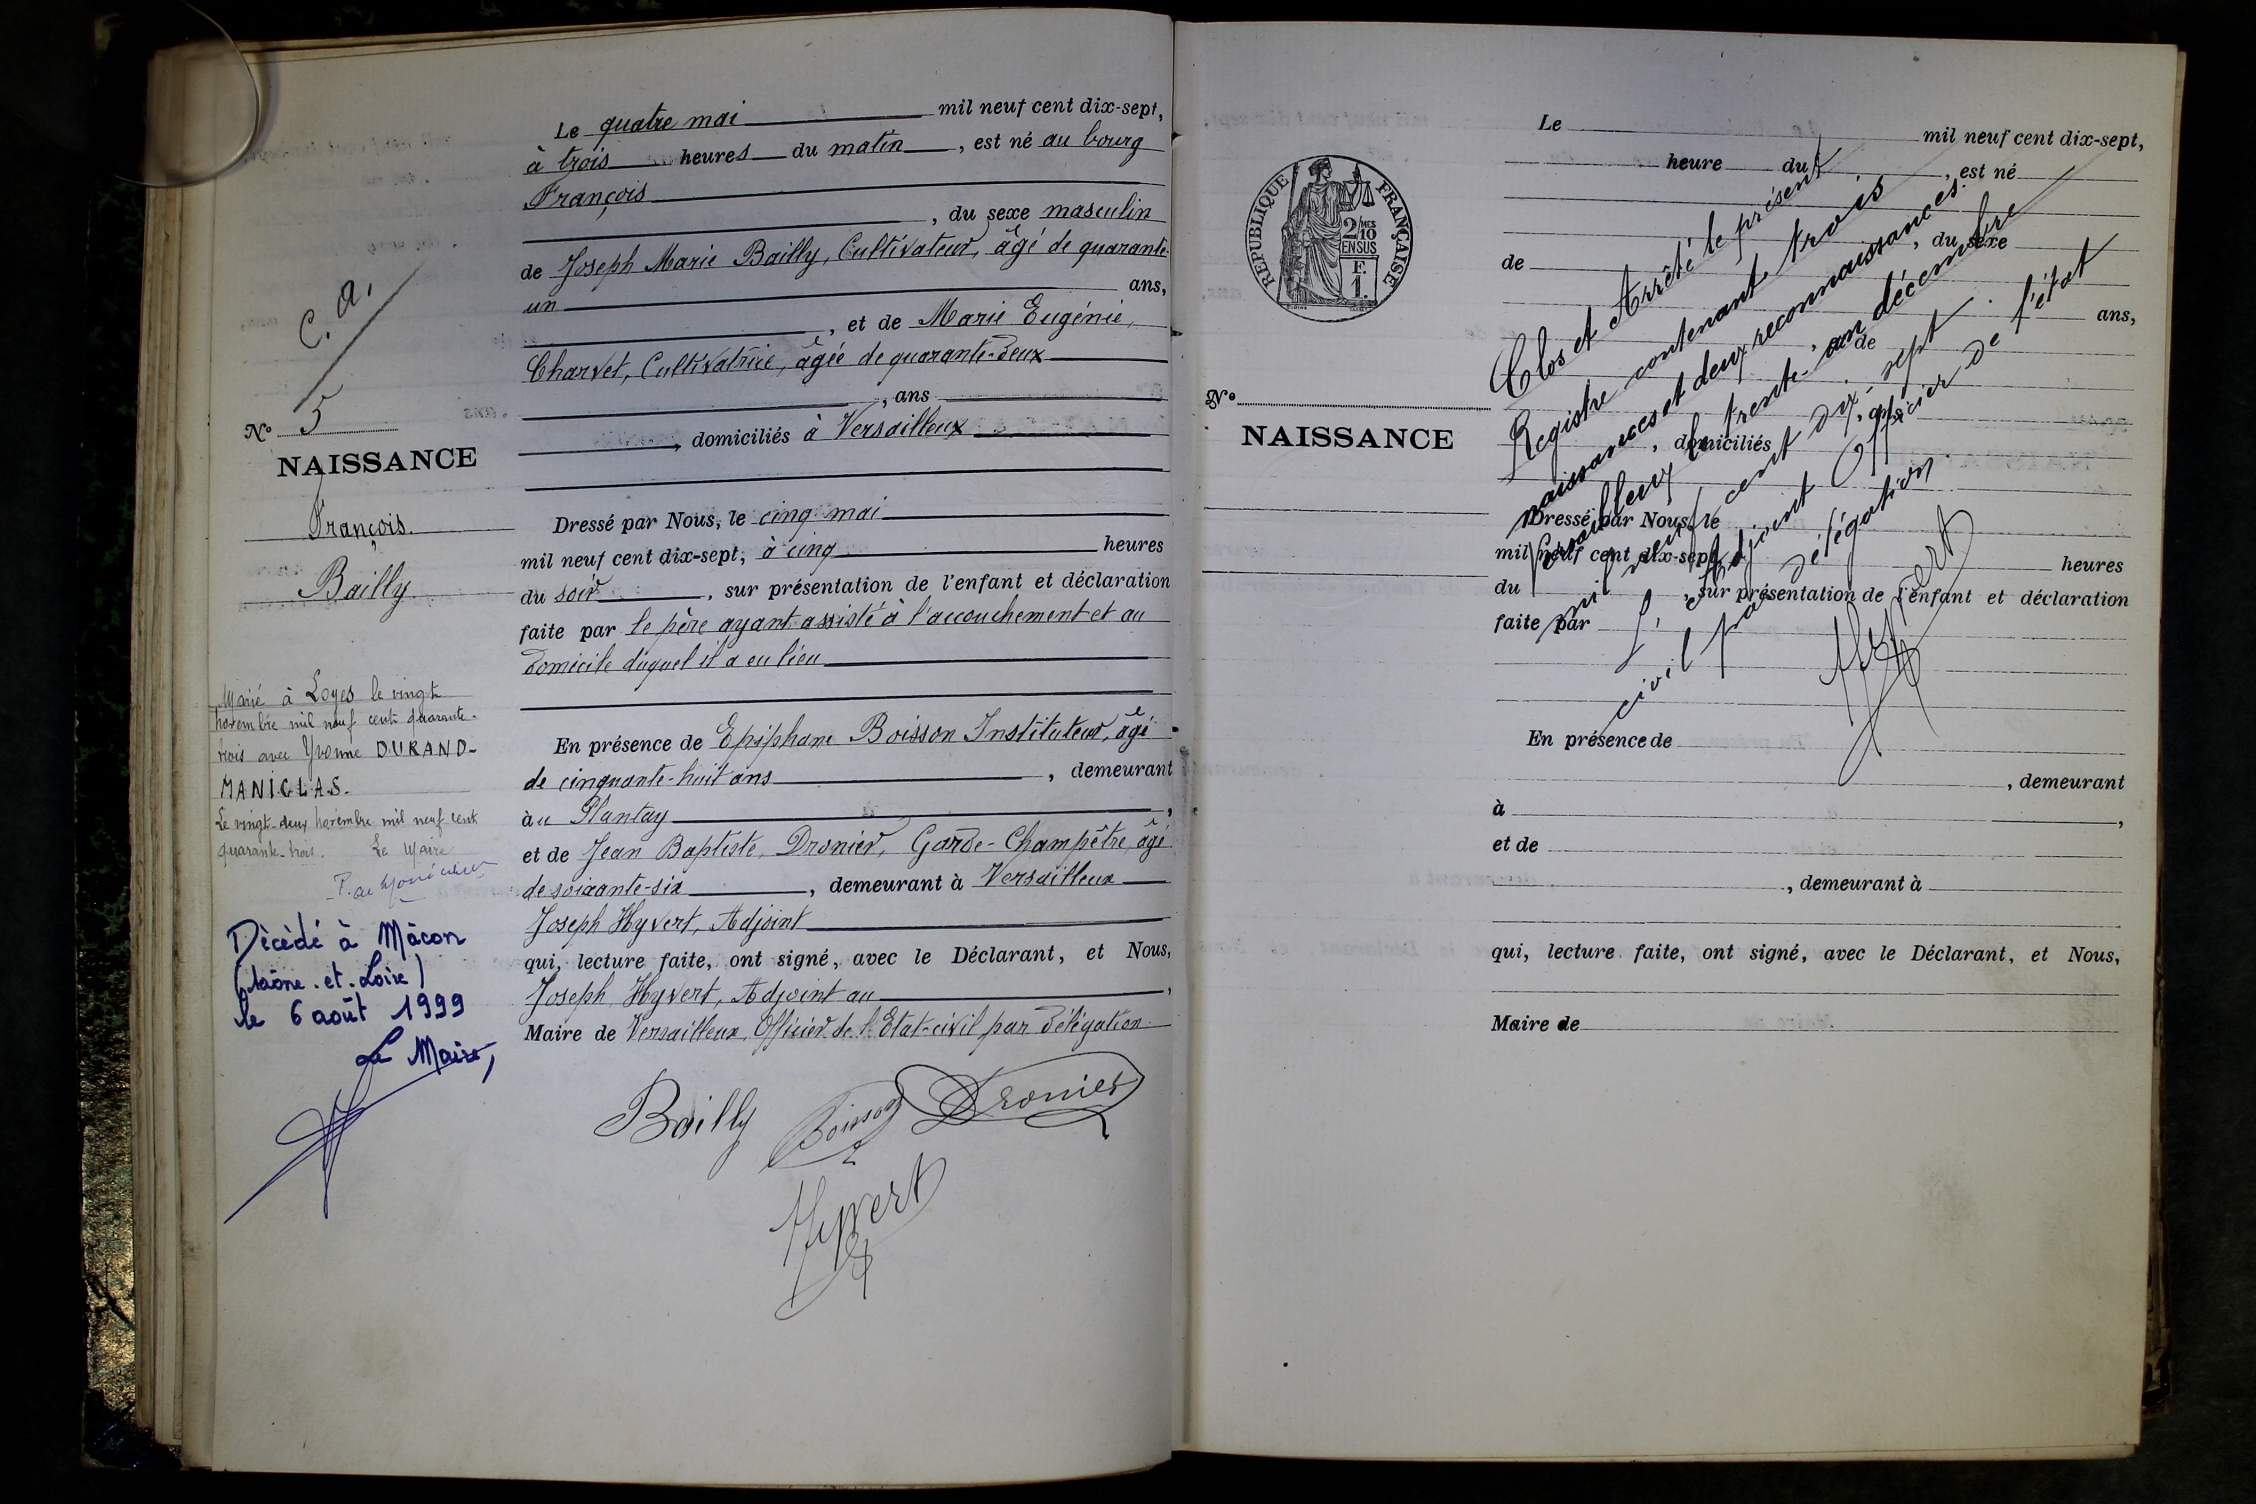 C. A.
Nº 5
NAISSANCE
François
Bailly
Marié à Loyes le vingt
novembre mil neuf cent quarante-
trois avec Yvonne DURAND-
MANICLAS.
Le vingt-deux novembre mil neuf cent
quarante-trois. Le Maire
Décédé à Mâcon
(Saône.et.Loire)
le 6 août 1999
Le Maire,
Le quatre mai mil neuf cent dix-sept,
à trois heures du matin, est né au bourg
François
, du sexe masculin
de Joseph Marie Bailly, Cultivateur, âgé de quarante-
un ans,
, et de Marie Eugénie,
Charvet, Cultivatrice, âgée de quarante-deux
, ans
, domiciliés à Versailleux
Dressé par Nous, le cinq mai
mil neuf cent dix-sept, à cinq heures
du soir, sur présentation de l'enfant et déclaration
faite par le père ayant assisté à l'accouchement et au
domicile duquel il a eu lieu
En présence de Epiphane Boisson Instituteur, âgé
de cinquante-huit ans, demeurant
àu Plantay,
et de Jean Baptiste, Dronier, Garde-Champêtre, âgé
de soixante-six, demeurant à Versailleux
Joseph Hyvert, Adjoint
qui, lecture faite, ont signé, avec le Déclarant, et Nous,
Joseph Hyvert, Adjoint au,
Maire de Versailleux, Officier de l'Etat-civil par délégation.
Bailly Boisson Dronier
Hyvert
RÉPUBLIQUE FRANÇAISE
2/10 MES
EN SUS
F.
1.
Nº
NAISSANCE
Le mil neuf cent dix-sept,
heure du, est né
, du sexe
de
ans,
et de
, ans
, domiciliés
Dressé par Nous, le
mil neuf cent dix-sept, heures
du, sur présentation de l'enfant et déclaration
faite par
En présence de
, demeurant
à,
et de
, demeurant à
qui, lecture faite, ont signé, avec le Déclarant, et Nous,
Maire de
Clos et Arrêté le présent
Registre contenant trois
naissances et deux reconnaissances.
Versailleux le trente-un décembre
mil neuf cent dix-sept.
L'Adjoint Officier de l'état
civil par délégation.
Hyvert